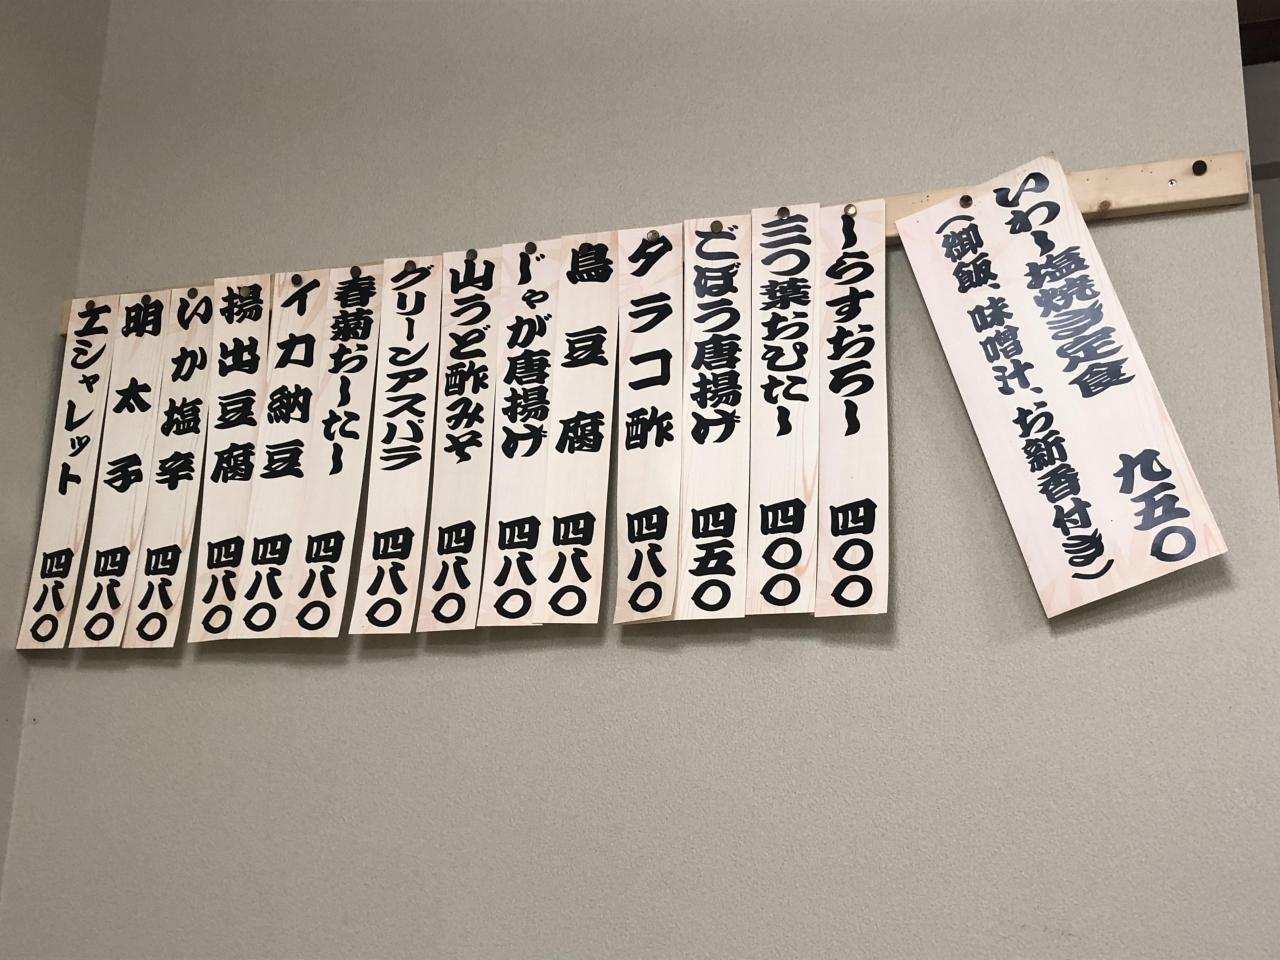 いわし塩焼き定食 九五〇
(御飯、味噌汁、お新香付き)
しらすおろし 四〇〇
三つ葉おひたし 四〇〇
ごぼう唐揚げ 四五〇
タラコ酢 四八〇
鳥豆腐 四八〇
じゃが唐揚げ 四八〇
山うど酢みそ 四八〇
グリーンアスパラ 四八〇
春菊おしたし 四八〇
イカ納豆 四八〇
揚出豆腐 四八〇
いか塩辛 四八〇
明太子 四八〇
エシャレット 四八〇